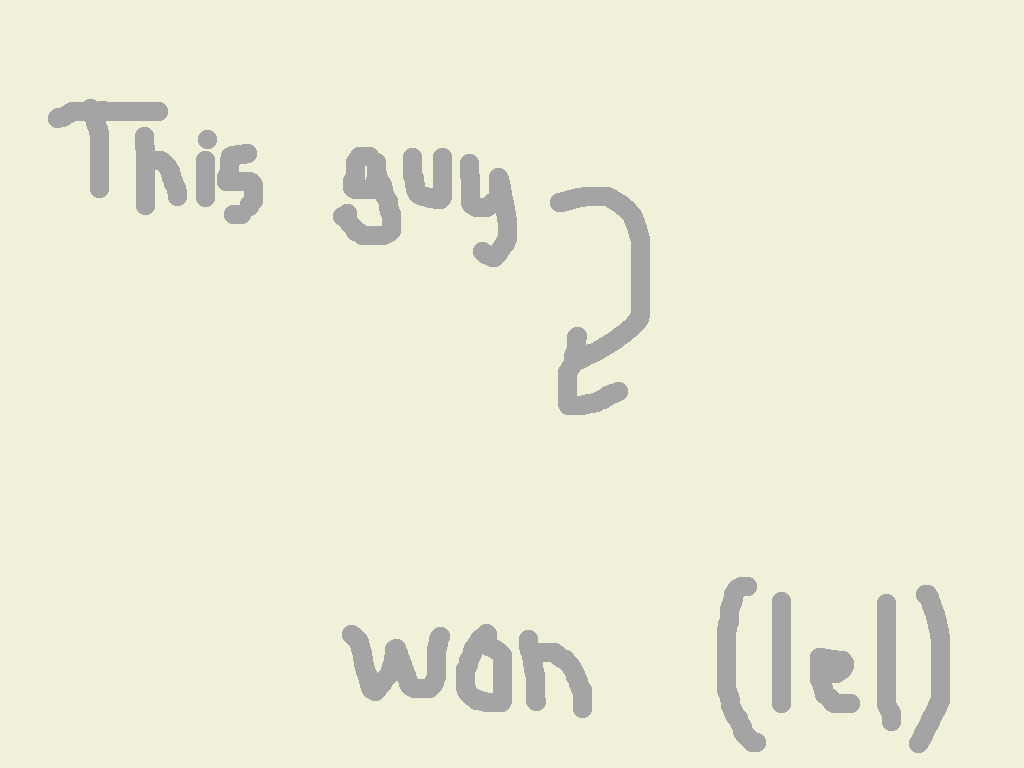 This guy
won (lel)